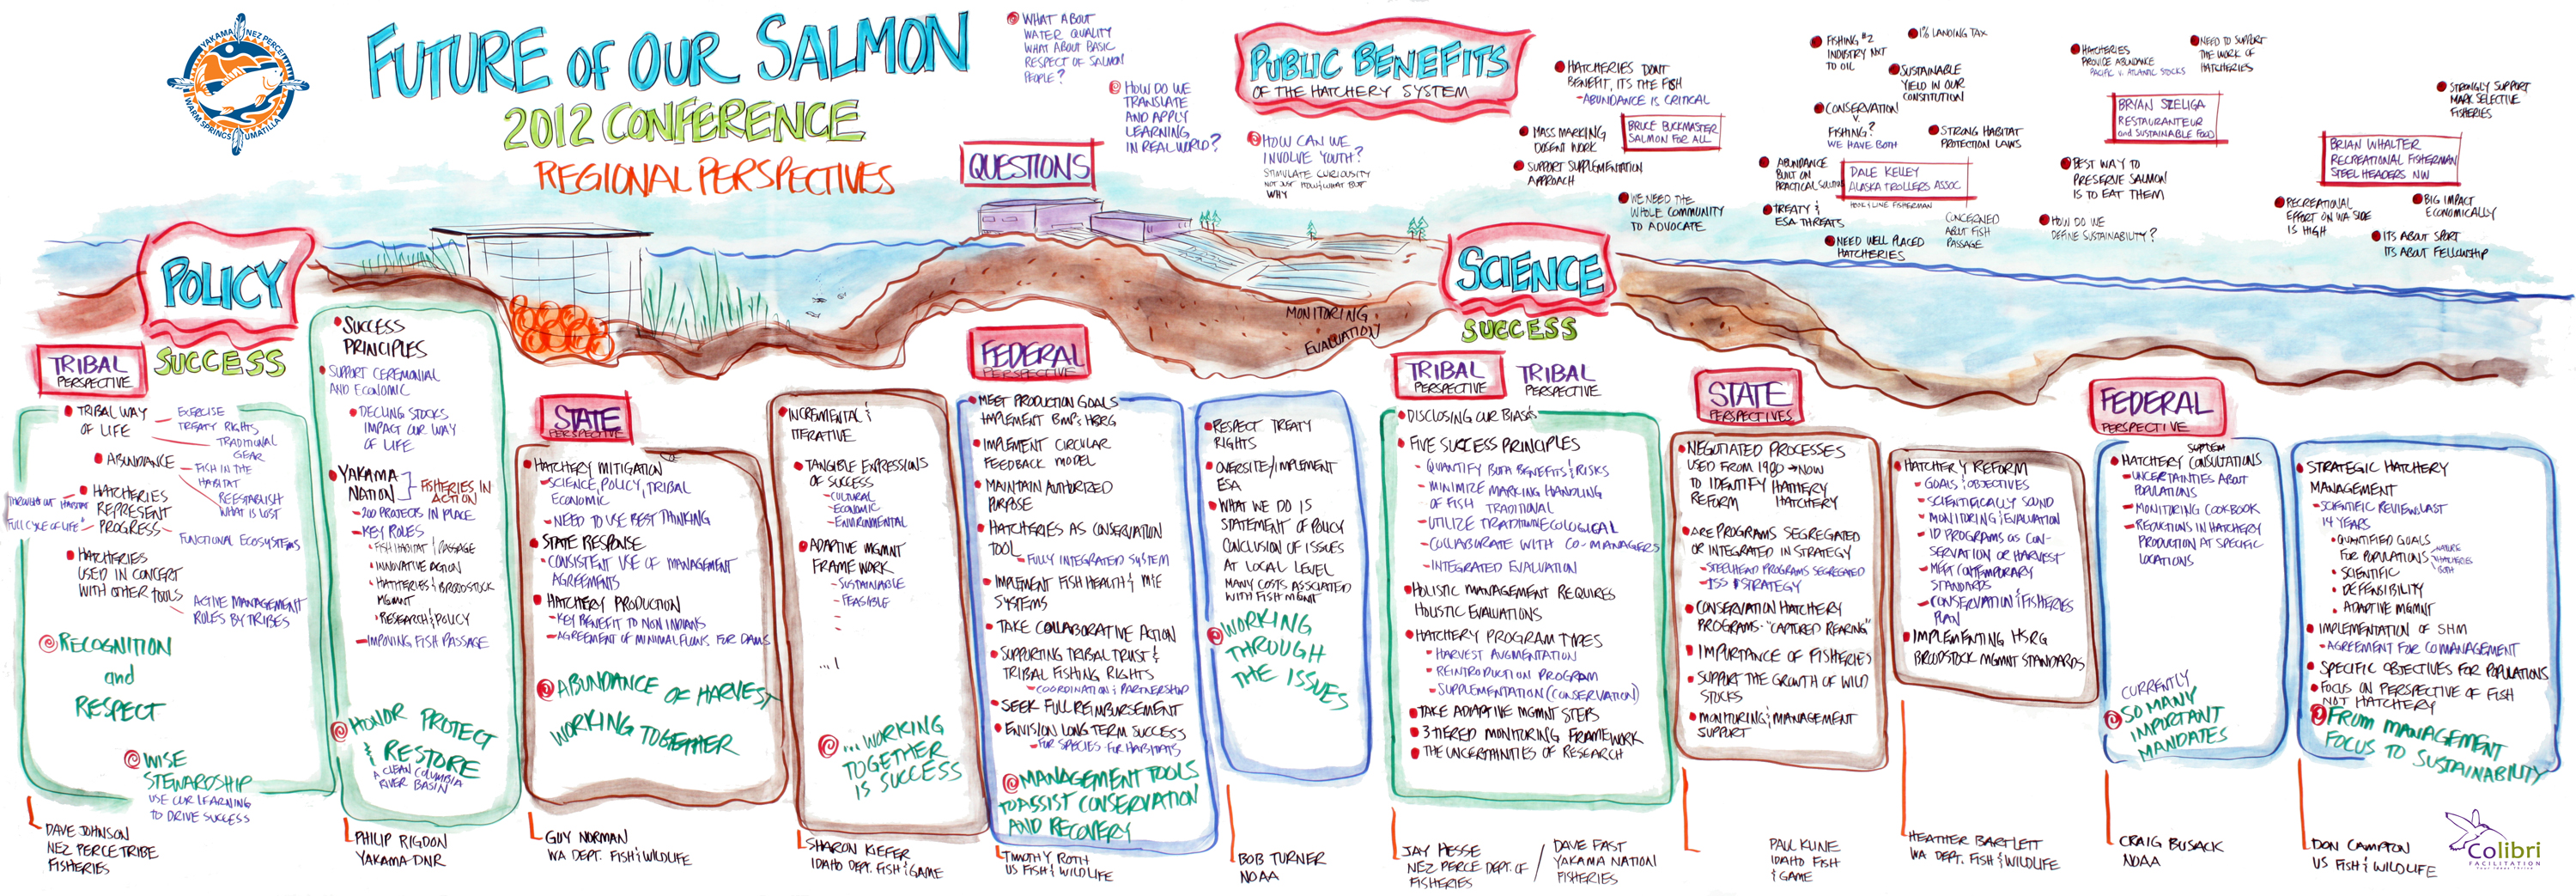 YAKAMA NEZ PERCE
WARM SPRINGS UMATILLA
FUTURE OF OUR SALMON
2012 CONFERENCE
REGIONAL PERSPECTIVES
QUESTIONS
WHAT ABOUT
WATER QUALITY
WHAT ABOUT BASIC
RESPECT OF SALMON
PEOPLE?
HOW DO WE
TRANSLATE
AND APPLY
LEARNING
IN REAL WORLD?
HOW CAN WE
INVOLVE YOUTH?
STIMULATE CURIOUSITY
NOT JUST HOW & WHAT BUT
WHY
PUBLIC BENEFITS
OF THE HATCHERY SYSTEM
HATCHERIES DON'T
BENEFIT, ITS THE FISH
- ABUNDANCE IS CRITICAL
MASS MARKING
DOESNT WORK
SUPPORT SUPPLEMENTATION
APPROACH
BRUCE BUCKMASTER
SALMON FOR ALL
WE NEED THE
WHOLE COMMUNITY
TO ADVOCATE
FISHING #2
INDUSTRY NXT
TO OIL
1% LANDING TAX
SUSTAINABLE
YIELD IN OUR
CONSTITUTION
CONSERVATION
V.
FISHING?
WE HAVE BOTH
STRONG HABITAT
PROTECTION LAWS
ABUNDANCE
BUILT ON
PRACTICAL SOLUTIONS
DALE KELLEY
ALASKA TROLLERS ASSOC
HOOK & LINE FISHERMAN
TREATY &
ESA THREATS
CONCERNED
ABOUT FISH
PASSAGE
NEED WELL PLACED
HATCHERIES
HATCHERIES
PROVIDE ABUNDANCE
PACIFIC V. ATLANTIC STOCKS
NEED TO SUPPORT
THE WORK OF
HATCHERIES
BRYAN SZELIGA
RESTAURANTEUR
and SUSTAINABLE FOOD
BEST WAY TO
PRESERVE SALMON
IS TO EAT THEM
HOW DO WE
DEFINE SUSTAINABILITY?
STRONGLY SUPPORT
MARK SELECTIVE
FISHERIES
BRIAN WHALTER
RECREATIONAL FISHERMAN
STEEL HEADERS NW
RECREATIONAL
EFFORT ON WA SIDE
IS HIGH
BIG IMPACT
ECONOMICALLY
ITS ABOUT SPORT
ITS ABOUT FELLOWSHIP
POLICY
SUCCESS
TRIBAL
PERSPECTIVE
TRIBAL WAY
OF LIFE
EXERCISE
TREATY RIGHTS
TRADITIONAL
GEAR
ABUNDANCE
FISH IN THE
HABITAT
REESTABLISH
WHAT IS LOST
HATCHERIES
REPRESENT
PROGRESS
THROUGHOUT HABITAT
FULL CYCLE OF LIFE
FUNCTIONAL ECOSYSTEMS
HATCHERIES
USED IN CONCERT
WITH OTHER TOOLS
ACTIVE MANAGEMENT
ROLES BY TRIBES
RECOGNITION
and
RESPECT
WISE
STEWARDSHIP
USE OUR LEARNING
TO DRIVE SUCCESS
DAVE JOHNSON
NEZ PERCE TRIBE
FISHERIES
SUCCESS
PRINCIPLES
SUPPORT CEREMONIAL
AND ECONOMIC
DECLING STOCKS
IMPACT OUR WAY
OF LIFE
YAKAMA
NATION
FISHERIES IN
ACTION
- 200 PROJECTS IN PLACE
- KEY ROLES
FISH HABITAT & PASSAGE
INNOVATIVE ACTION
HATHERIES & BROODSTOCK
MGMNT
RESEARCH & POLICY
- IMPOVING FISH PASSAGE
HONOR PROTECT
& RESTORE
A CLEAN COLUMBIA
RIVER BASIN
PHILIP RIGDON
YAKAMA DNR
STATE
PERSPECTIVE
HATCHERY MITIGATION
- SCIENCE, POLICY, TRIBAL
ECONOMIC
- NEED TO USE BEST THINKING
STATE RESPONSE
- CONSISTENT USE OF MANAGEMENT
AGREEMENTS
HATCHERY PRODUCTION
- KEY BENEFIT TO NON INDIANS
- AGREEMENT OF MINIMAL FLOWS FOR DAMS
ABUNDANCE OF HARVEST
WORKING TOGETHER
GUY NORMAN
WA DEPT. FISH & WILDLIFE
INCREMENTAL &
ITERATIVE
TANGIBLE EXPRESSIONS
OF SUCCESS
- CULTURAL
- ECONOMIC
- ENVIRONMENTAL
ADAPTIVE MGMNT
FRAMEWORK
- SUSTAINABLE
- FEASIBLE
-
-
...
... WORKING
TOGETHER
IS SUCCESS
SHARON KIEFER
IDAHO DEPT. FISH & GAME
FEDERAL
PERSPECTIVE
MEET PRODUCTION GOALS
IMPLEMENT BMPs HSRG
IMPLEMENT CIRCULAR
FEEDBACK MODEL
MAINTAIN AUTHORIZED
PURPOSE
HATCHERIES AS CONSERVATION
TOOL
- FULLY INTEGRATED SYSTEM
IMPLEMENT FISH HEALTH & M&E
SYSTEMS
TAKE COLLABORATIVE ACTION
SUPPORTING TRIBAL TRUST &
TRIBAL FISHING RIGHTS
- COORDINATION & PARTNERSHIP
SEEK FULL REIMBURSEMENT
ENVISION LONG TERM SUCCESS
- FOR SPECIES - FOR HABITATS
MANAGEMENT TOOLS
TO ASSIST CONSERVATION
AND RECOVERY
TIMOTHY ROTH
US FISH & WILDLIFE
RESPECT TREATY
RIGHTS
OVERSITE/IMPLEMENT
ESA
WHAT WE DO IS
STATEMENT OF POLICY
CONCLUSION OF ISSUES
AT LOCAL LEVEL
MANY COSTS ASSOCIATED
WITH FISH MGMT
WORKING
THROUGH
THE ISSUES
BOB TURNER
NOAA
MONITORING
EVALUATION
SCIENCE
SUCCESS
TRIBAL
PERSPECTIVE
TRIBAL
PERSPECTIVE
DISCLOSING OUR BIASES
FIVE SUCCESS PRINCIPLES
- QUANTIFY BOTH BENEFITS & RISKS
- MINIMIZE MARKING HANDLING
OF FISH TRADITIONAL
- UTILIZE TRADITION ECOLOGICAL
- COLLABORATE WITH CO-MANAGERS
- INTEGRATED EVALUATION
HOLISTIC MANAGEMENT REQUIRES
HOLISTIC EVALUATIONS
HATCHERY PROGRAM TYPES
- HARVEST AUGMENTATION
- REINTRODUCTION PROGRAM
- SUPPLEMENTATION (CONSERVATION)
TAKE ADAPTIVE MGMNT STEPS
3-TIERED MONITORING FRAMEWORK
THE UNCERTAINTIES OF RESEARCH
JAY HESSE
NEZ PERCE DEPT. OF
FISHERIES
/ DAVE FAST
YAKAMA NATION
FISHERIES
STATE
PERSPECTIVES
NEGOTIATED PROCESSES
USED FROM 1980 → NOW
TO IDENTIFY HATCHERY
REFORM HATCHERY
ARE PROGRAMS SEGREGATED
OR INTEGRATED IN STRATEGY
- STEELHEAD PROGRAMS SEGREGATED
- ISS STRATEGY
CONSERVATION HATCHERY
PROGRAMS - "CAPTURED REARING"
IMPORTANCE OF FISHERIES
SUPPORT THE GROWTH OF WILD
STOCKS
MONITORING & MANAGEMENT
SUPPORT
PAUL KLINE
IDAHO FISH
& GAME
HATCHERY REFORM
- GOALS & OBJECTIVES
- SCIENTIFICALLY SOUND
- MONITORING & EVALUATION
- ID PROGRAMS AS CON-
SERVATION OR HARVEST
- MEET CONTEMPORARY
STANDARDS
- CONSERVATION & FISHERIES
PLAN
IMPLEMENTING HSRG
BROODSTOCK MGMNT STANDARDS
HEATHER BARTLETT
WA DEPT. FISH & WILDLIFE
FEDERAL
PERSPECTIVE
SYSTEM
HATCHERY CONSULTATIONS
- UNCERTAINTIES ABOUT
POPULATIONS
- MONITORING COOKBOOK
- REDUCTIONS IN HATCHERY
PRODUCTION AT SPECIFIC
LOCATIONS
CURRENTLY
SO MANY
IMPORTANT
MANDATES
CRAIG BUSACK
NOAA
STRATEGIC HATCHERY
MANAGEMENT
- SCIENTIFIC REVIEW LAST
14 YEARS
QUANTIFIED GOALS
FOR POPULATIONS
NATURE
HATCHERIES
BOTH
SCIENTIFIC
DEFENSIBILITY
ADAPTIVE MGMNT
IMPLEMENTATION OF SHM
- AGREEMENT FOR COMANAGEMENT
SPECIFIC OBJECTIVES FOR POPULATIONS
FOCUS ON PERSPECTIVE OF FISH
NOT HATCHERY
FROM MANAGEMENT
FOCUS TO SUSTAINABILITY
DON CAMPTON
US FISH & WILDLIFE
Colibri
FACILITATION